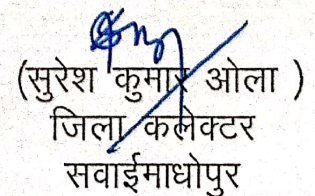 (सुरेश कुमार ओला )
जिला कलेक्टर
सवाईमाधोपुर